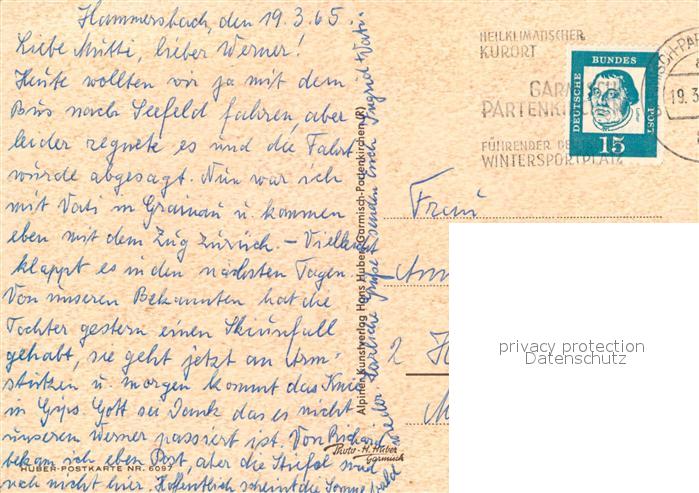 Hammersbach, den 19.3.65.
Liebe Mutti, lieber Werner!
Heute wollten wir ja mit dem
Bus nach Seefeld fahren, aber
leider regnete es und die Fahrt
wurde abgesagt. Nun war ich
mit Vati in Grainau u. kommen
eben mit dem Zug zurück. – Vielleicht
klappt es in den nächsten Tagen.
Von unseren Bekannten hat die
Tochter gestern einen Skiunfall
gehabt, sie geht jetzt an Arm-
stützen u. morgen kommt das Knie
in Gips. Gott sei Dank das es nicht
unserem Werner passiert ist. Von Richard
bekam ich eben Post, aber die Stiefel sind
noch nicht hier. Hoffentlich scheint die Sonne bald
wieder. Herzliche Grüße senden Euch Ingrid Vati
HUBER-POSTKARTE NR. 6097
Photo-H. Huber
Garmisch
Alpiner Kunstverlag Hans Huber, Garmisch-Partenkirchen (R)
HEILKLIMATISCHER
KURORT
GARMISCH
PARTENKIRCHEN
FÜHRENDER DEUTSCHER
WINTERSPORTPLATZ
19.3
DEUTSCHE
BUNDES
POST
15
Frau
2
privacy protection
Datenschutz